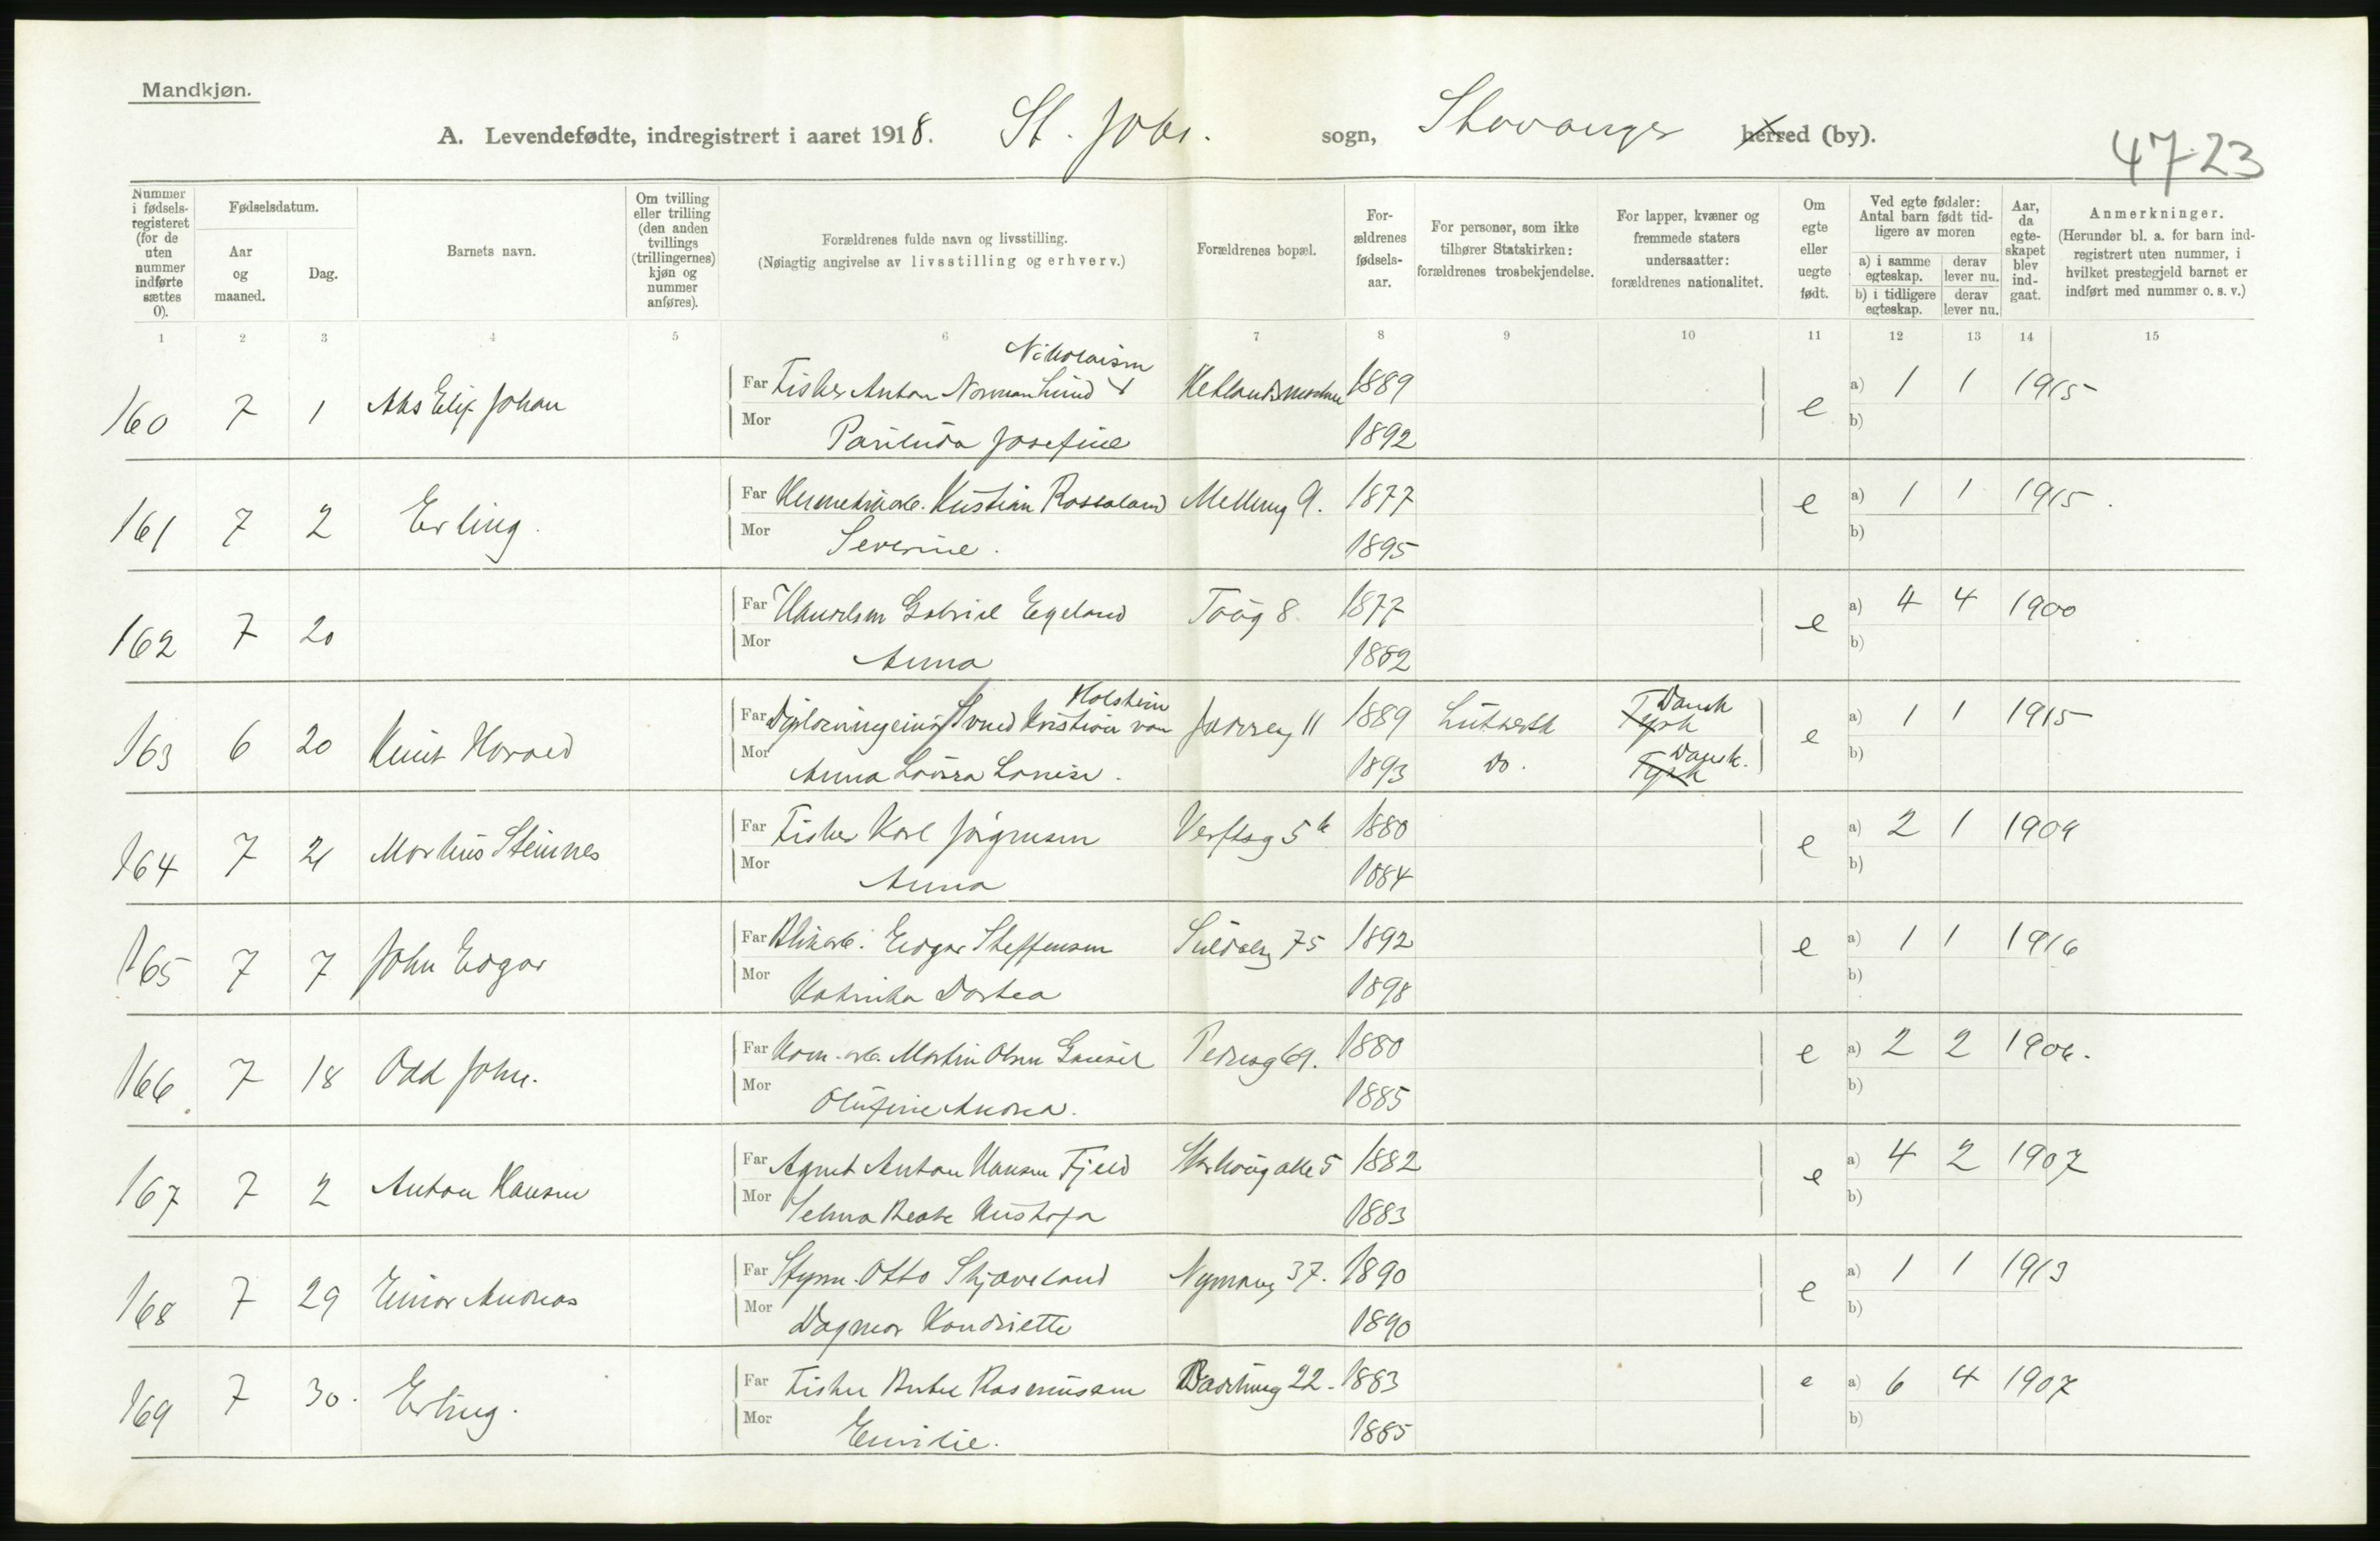 Mandkjøn.
A. Levendefødte, indregistrert i aaret 1918. St. Johs. sogn, Stavanger herred (by).
47-23
Nummer i fødsels-registeret (for de uten nummer indførte sættes 0).
Fødselsdatum.
Aar og maaned.
Dag.
Barnets navn.
Om tvilling eller trilling (den anden tvillings (trillingernes) kjøn og nummer anføres).
Forældrenes fulde navn og livsstilling.
(Nøiagtig angivelse av livsstilling og erhverv.)
Forældrenes bopæl.
For-ældrenes fødsels-aar.
For personer, som ikke tilhører Statskirken: forældrenes trosbekjendelse.
For lapper, kvæner og fremmede staters undersaatter: forældrenes nationalitet.
Om egte eller uegte født.
Ved egte fødsler: Antal barn født tid-ligere av moren
a) i samme egteskap. derav lever nu.
b) i tidligere egteskap. derav lever nu.
Aar, da egte-skapet blev ind-gaat.
Anmerkninger.
(Herunder bl. a. for barn ind-registrert uten nummer, i hvilket prestegjeld barnet er indført med nummer o. s. v.)
1 2 3 4 5 6 7 8 9 10 11 12 13 14 15
Nikolaisen
160 7 1 Johan Far Fisker Anton Norman Lund 1889 e a) 1 1 1915
Mor Josefine 1892 b)
161 7 2 Erling. Far Hermetikarb. Kristian Rossaland Melling g. 1877 e a) 1 1 1915.
Mor Severine. 1895 b)
162 7 20 Far Gabriel Egeland 8. 1877 e a) 4 4 1900
Mor Anna 1882 b)
Holstein Dansk
163 6 20 Knut Harald Far Diplomingeniør Svend Kristian von 11 1889 Luthersk Tysk e a) 1 1 1915
Dansk.
Mor Anna Laura Louise. 1893 Do. Tysk b)
164 7 21 Martius Steinnes Far Fisker Karl Jørgensen Verftsg 5 b 1880 e a) 2 1 1909
Mor Anna 1884 b)
165 7 7 John Edgar Far Blikarb. Edgar Steffensen Suldalsg 75 1892 e a) 1 1 1916
Mor Katrinka Dortea 1898 b)
166 7 18 Odd John. Far Kom. arb. Martin Olsen Gausel Pedersg 69. 1880 e a) 2 2 1906.
Mor Olufine Andrea. 1885 b)
167 7 2 Anton Hansen Far Agent Anton Hansen Fjeld Storhaug alle 5 1882 e a) 4 2 1907
Mor Selma Beate Kristofa 1883 b)
168 7 29 Einar Andreas Far Styrm. Otto Skjæveland Nymansg 37. 1890 e a) 1 1 1913
Mor Dagmar Handriette 1890 b)
169 7 30. Erling. Far Fisker Rasmussen 22. 1883 e a) 6 4 1907
Mor Emilie. 1885 b)